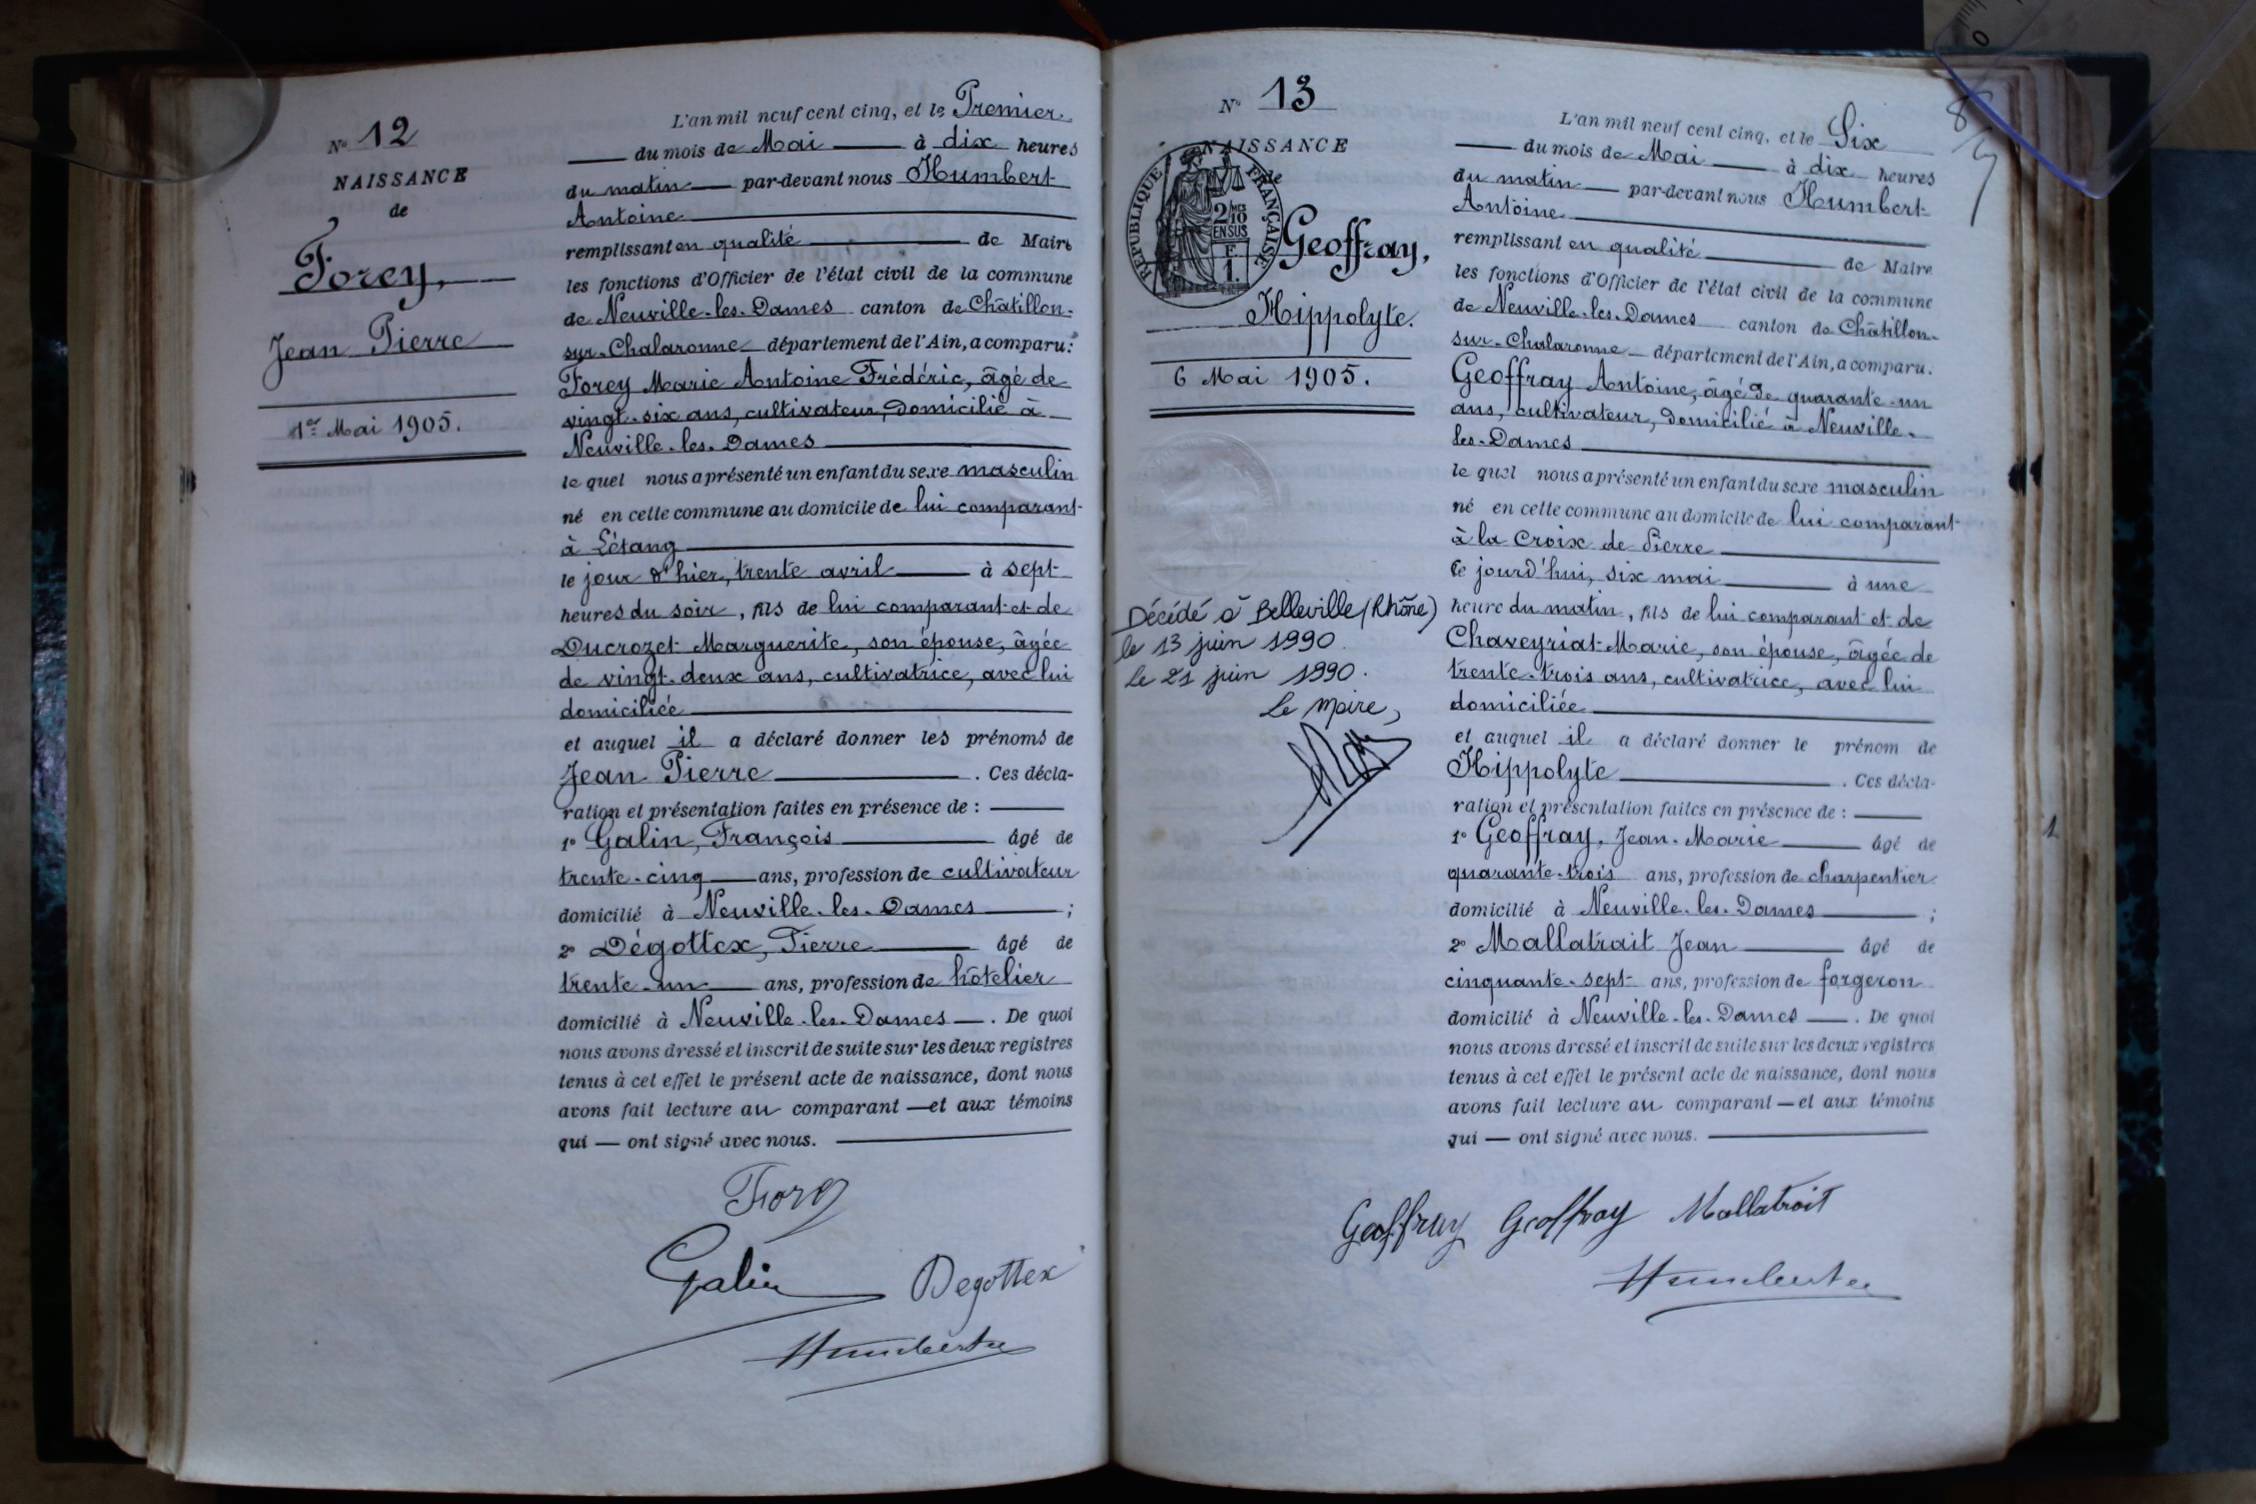 N° 12
NAISSANCE
de
Forey,
Jean Pierre
1er Mai 1905.
L'an mil neuf cent cinq, et le Premier
du mois de Mai à dix heures
du matin par-devant nous Humbert
Antoine
remplissant en qualité de Maire
les fonctions d'Officier de l'état civil de la commune
de Neuville-les-Dames canton de Châtillon-
sur-Chalaronne département de l'Ain, a comparu:
Forey Marie Antoine Frédéric, âgé de
vingt-six ans, cultivateur, domicilié à
Neuville-les-Dames
le quel nous a présenté un enfant du sexe masculin
né en cette commune au domicile de lui comparant
à L'étang
le jour d'hier, trente avril à sept
heures du soir, fils de lui comparant et de
Ducrozet Marguerite, son épouse, âgée
de vingt-deux ans, cultivatrice, avec lui
domiciliée
et auquel il a déclaré donner les prénoms de
Jean Pierre . Ces décla-
ration et présentation faites en présence de :
1° Galin, François âgé de
trente-cinq ans, profession de cultivateur
domicilié à Neuville-les-Dames ;
2° Dégottex, Pierre âgé de
trente-un ans, profession de hôtelier
domicilié à Neuville-les-Dames . De quoi
nous avons dressé et inscrit de suite sur les deux registres
tenus à cet effet le présent acte de naissance, dont nous
avons fait lecture au comparant — et aux témoins
qui — ont signé avec nous.
Forey
Galin
Degottex
Humbert
N° 13
NAISSANCE
de
RÉPUBLIQUE FRANÇAISE
2/10 MES
EN SUS
F.
1.
Geoffray,
Hippolyte.
6 Mai 1905.
Décédé à Belleville (Rhône)
le 13 juin 1990
le 21 juin 1990.
Le Maire,
8/9
L'an mil neuf cent cinq, et le Six
du mois de Mai à dix heures
du matin par-devant nous Humbert
Antoine
remplissant en qualité de Maire
les fonctions d'Officier de l'état civil de la commune
de Neuville-les-Dames canton de Châtillon-
sur-Chalaronne département de l'Ain, a comparu.
Geoffray Antoine, âgé de quarante-un
ans, cultivateur, domicilié à Neuville-
les-Dames
le quel nous a présenté un enfant du sexe masculin
né en cette commune au domicile de lui comparant
à la Croix de Pierre
ce jourd'hui, six mai à une
heure du matin, fils de lui comparant et de
Chaveyriat Marie, son épouse, âgée de
trente-trois ans, cultivatrice, avec lui
domiciliée
et auquel il a déclaré donner le prénom de
Hippolyte . Ces décla-
ration et présentation faites en présence de :
1° Geoffray, Jean-Marie âgé de
quarante-trois ans, profession de charpentier
domicilié à Neuville-les-Dames ;
2° Mallatrait Jean âgé de
cinquante-sept ans, profession de forgeron
domicilié à Neuville-les-Dames . De quoi
nous avons dressé et inscrit de suite sur les deux registres
tenus à cet effet le présent acte de naissance, dont nous
avons fait lecture au comparant — et aux témoins
qui — ont signé avec nous.
Geoffray Geoffray Mallatrait
Humbert